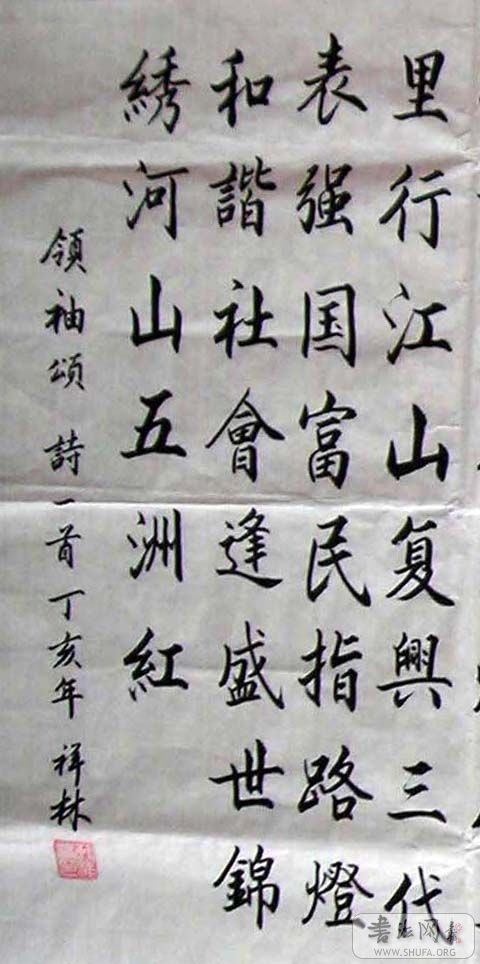 里行江山复興三代
表强国富民指路燈
和諧社會逢盛世錦
綉河山五洲紅
領袖頌 詩一首丁亥年 祥林
書法网
WWW.SHUFA.ORG